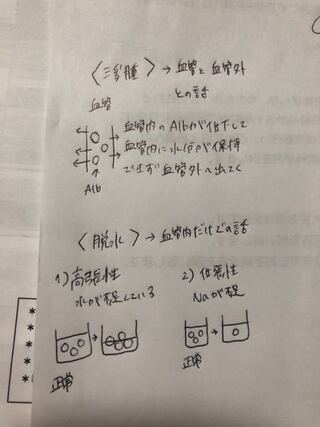 〈浮腫〉→血管と血管外
との話
血管
Alb
血管内のAlbが低下して
血管内に水分が保持
できず血管外へ出てく
〈脱水〉→血管内だけでの話
1) 高張性
水が不足している
正常
2) 低張性
Naが不足
正常